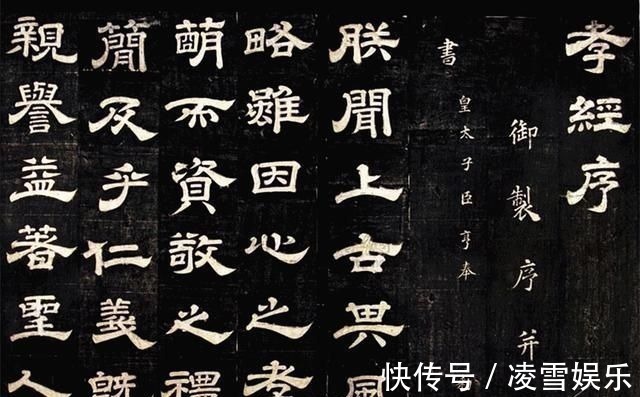 孝經序
御製序并
書 皇太子臣亨奉
朕聞上古其風
略雖因心之孝
萌而資敬之禮
簡及乎仁義既
親譽益著聖人
快传号／凌雪娱乐